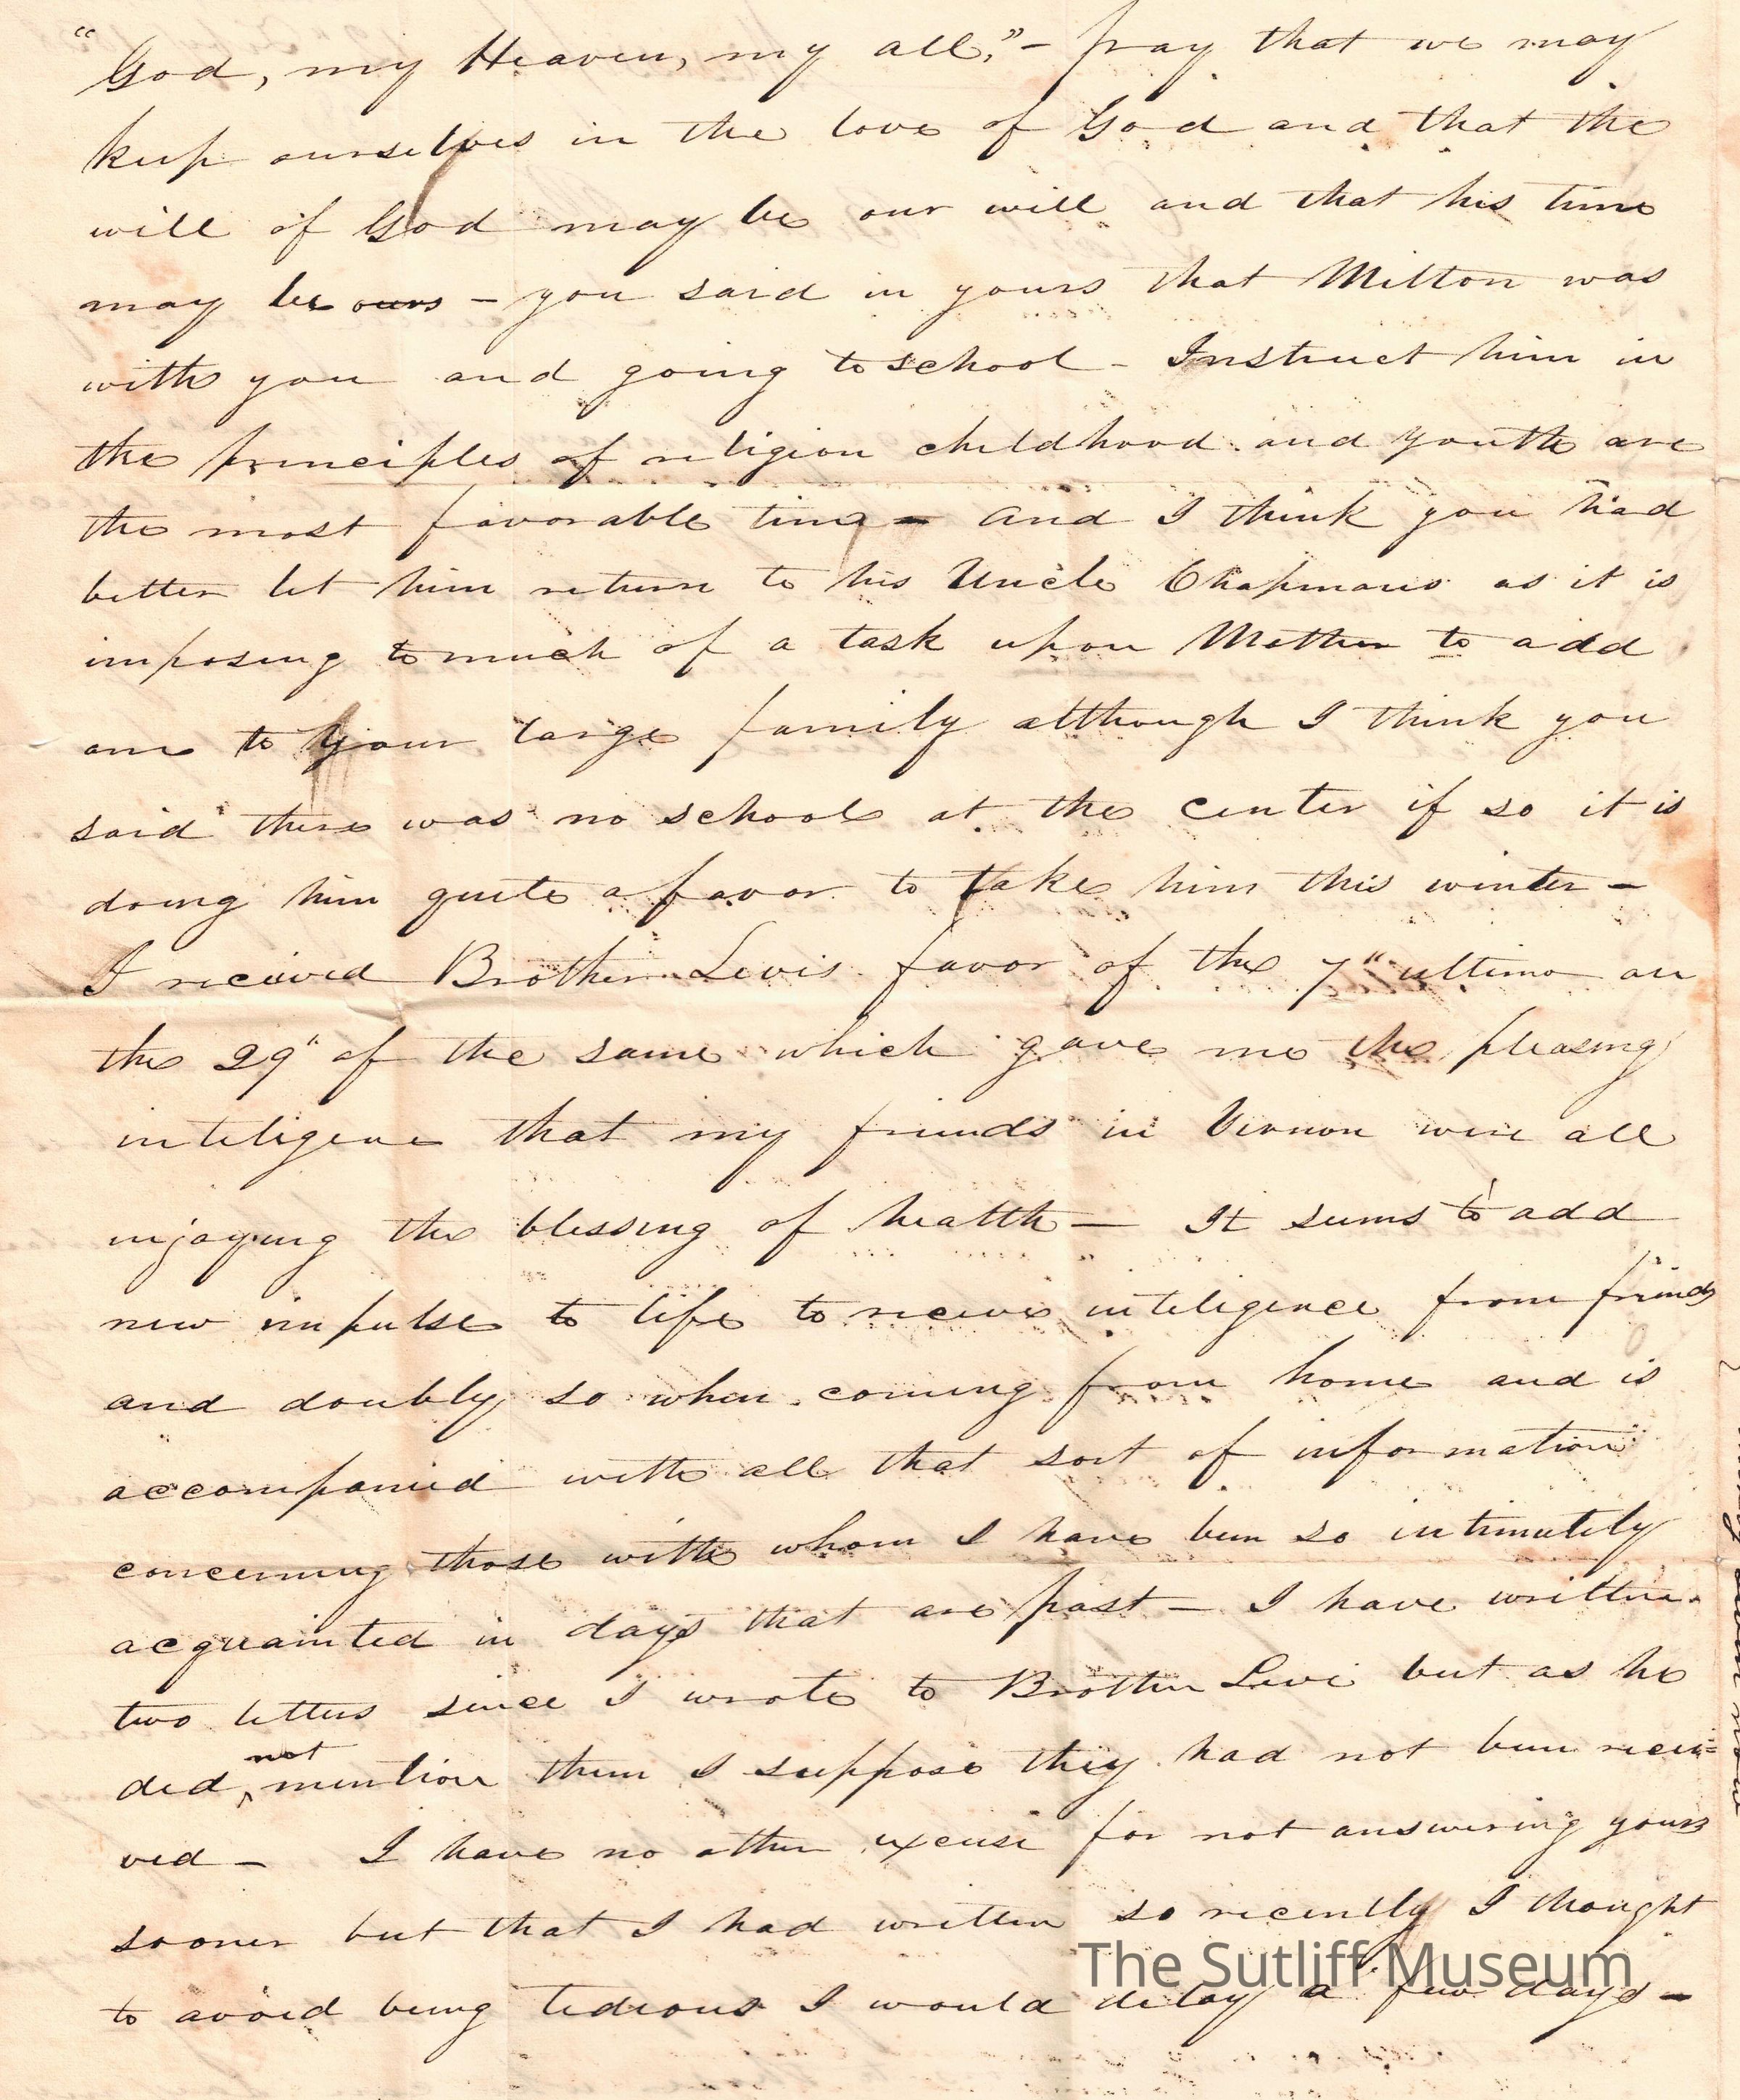 "God, my Heaven, my all," – pray that we may
keep ourselves in the love of God and that the
will of God may be our will and that his time
may be ours – you said in yours that Milton was
with you and going to school – Instruct him in
the principles of religion childhood and youth are
the most favorable time – and I think you had
better let him return to his Uncle Chapmans as it is
imposing to much of a task upon Mother to add
one to your large family although I think you
said there was no school at the center if so it is
doing him quite a favor to take him this winter –
I received Brother Levis favor of the 7" ultimo on
the 29" of the same which gave me the pleasing
inteligence that my friends in Vernon were all
injoying the blessing of health – It seems to add
new impulse to life to receive inteligence from friends
and doubly so when coming from home and is
accompanied with all that sort of information
concerning those with whom I have been so intimately
acquainted in days that are past – I have written
two letters since I wrote to Brother Levi but as he
did not mention them I suppose they had not been recei=
ved – I have no other excuse for not answering yours
sooner but that I had written so recently I thought
to avoid being tedious I would delay a few days –
The Sutliff Museum